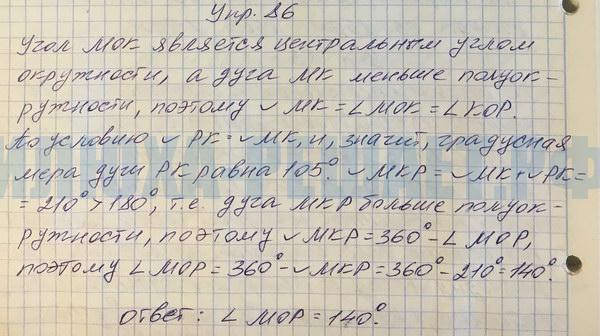 Упр. 86
Угол МОК является центральным углом
окружности, а дуга МК меньше полуок-
ружности, поэтому ◡ МК = ∠ МОК = ∠ КОР.
По условию ◡ РК = ◡ МК, и, значит, градусная
мера дуги РК равна 105°. ◡ МКР = ◡ МК + ◡ РК =
= 210° > 180°, т.е. дуга МКР больше полуок-
ружности, поэтому ◡ МКР = 360° - ∠ МОР,
поэтому ∠ МОР = 360° - ◡ МКР = 360° - 210° = 140°.
Ответ: ∠ МОР = 140°.